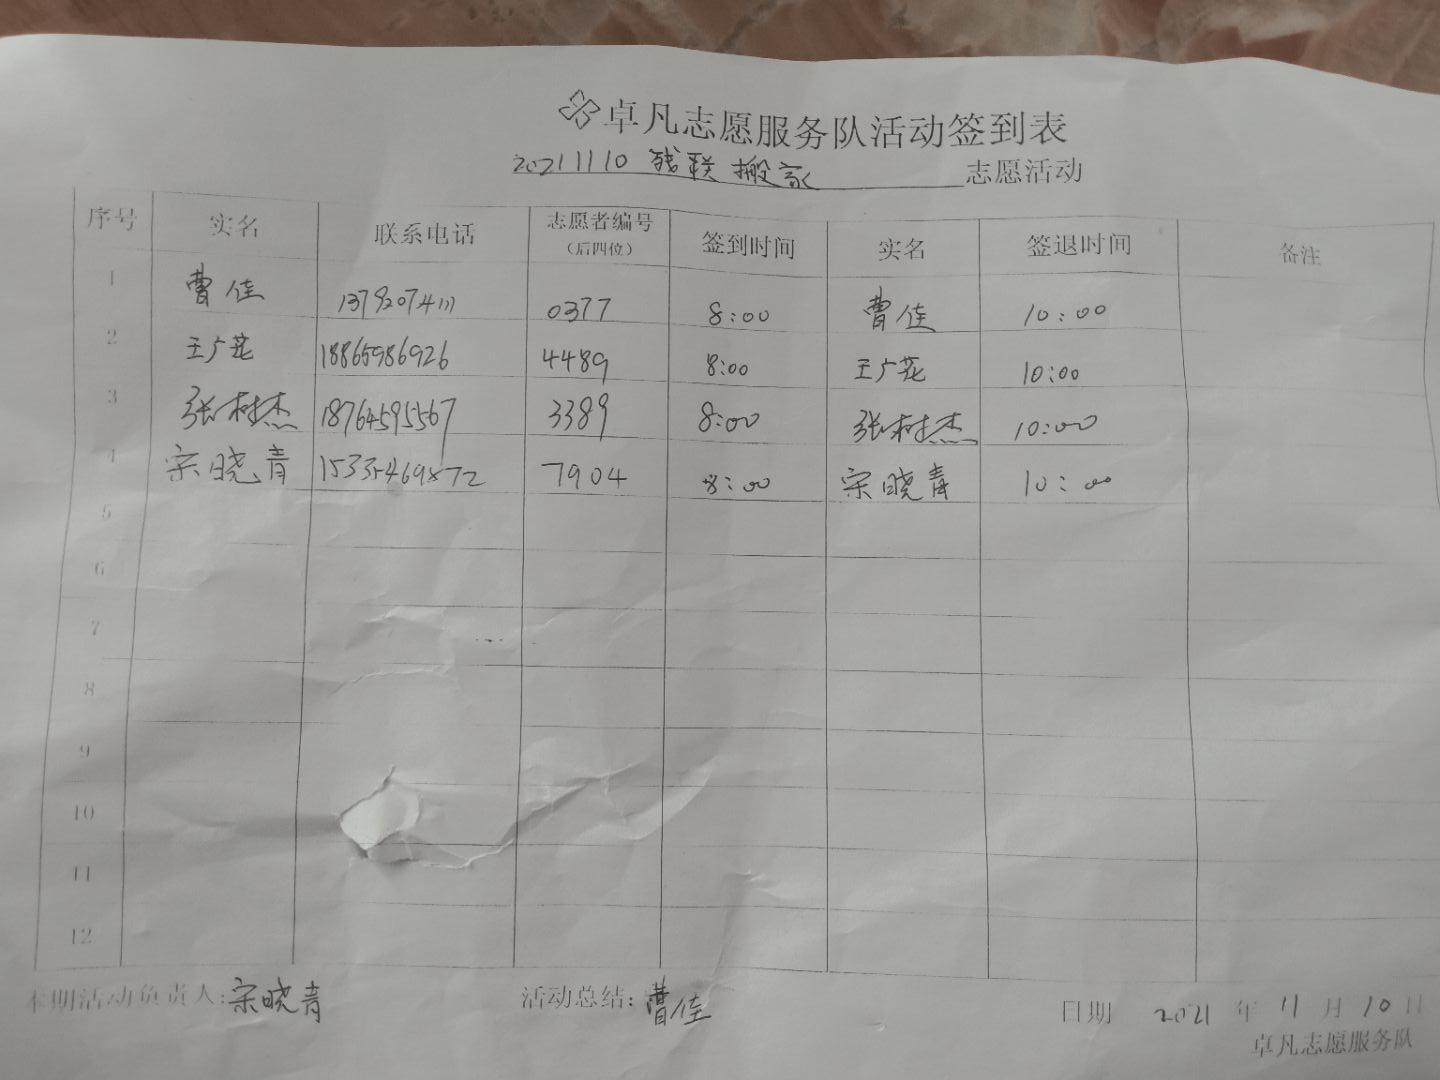 卓凡志愿服务队活动签到表
20211110 残联搬家 志愿活动
序号 实名 联系电话 志愿者编号（后四位） 签到时间 实名 签退时间 备注
1 曹佳 13792074111 0377 8:00 曹佳 10:00
2 王广花 18865986926 4489 8:00 王广花 10:00
3 张树杰 18764595567 3389 8:00 张树杰 10:00
4 宋晓青 15335469872 7904 8:00 宋晓青 10:00
5
6
7
8
9
10
11
12
本期活动负责人:宋晓青 活动总结:曹佳 日期 2021年11月10日
卓凡志愿服务队